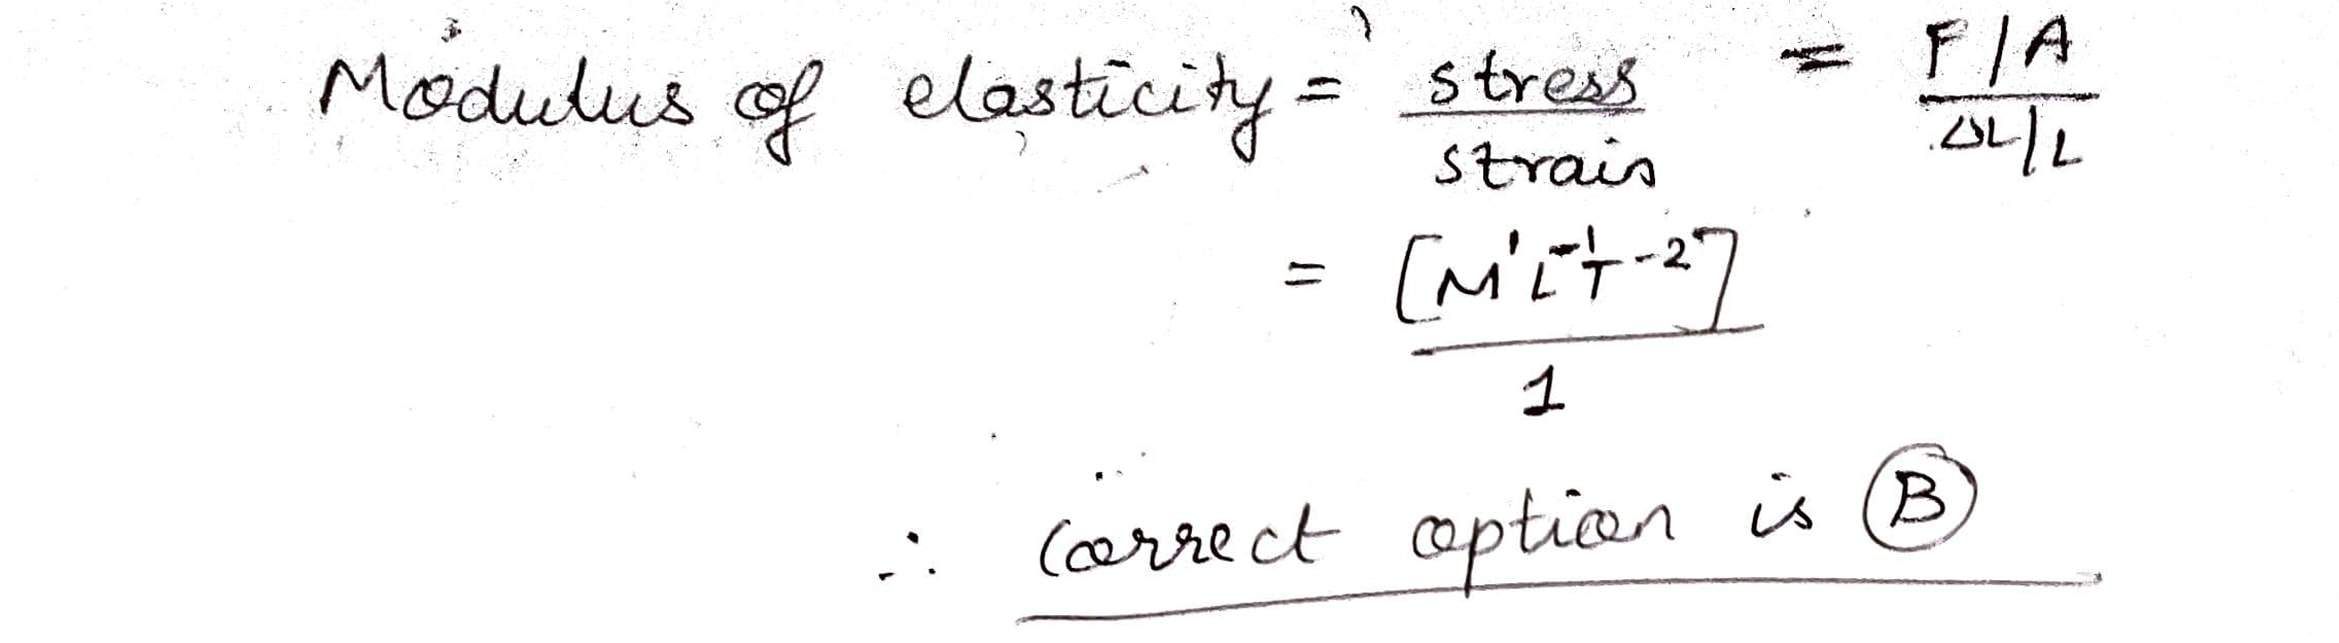 Modulus of elasticity = stress / strain = F/A / ΔL/L
= [M¹L⁻¹T⁻²] / 1
∴ correct option is B